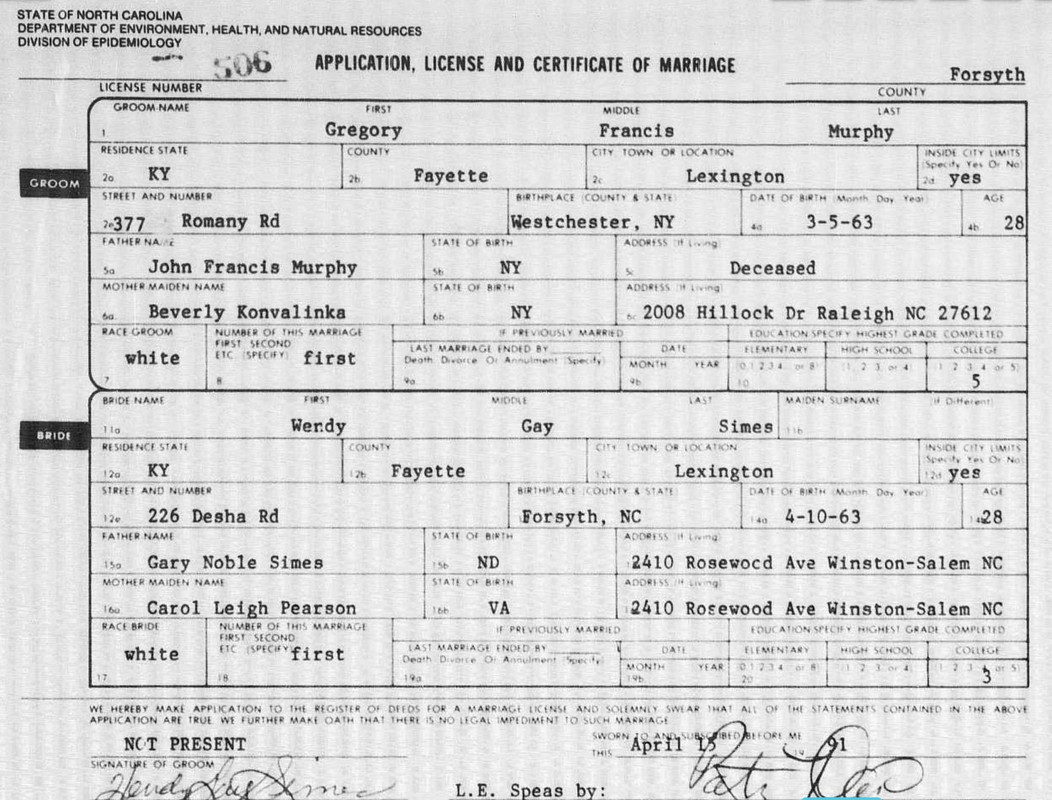 STATE OF NORTH CAROLINA
DEPARTMENT OF ENVIRONMENT, HEALTH, AND NATURAL RESOURCES
DIVISION OF EPIDEMIOLOGY
506 APPLICATION, LICENSE AND CERTIFICATE OF MARRIAGE Forsyth
LICENSE NUMBER COUNTY
GROOM-NAME FIRST MIDDLE LAST
1 Gregory Francis Murphy
RESIDENCE STATE COUNTY CITY TOWN OR LOCATION INSIDE CITY LIMITS (Specify Yes Or No)
GROOM 2a KY 2b Fayette 2c Lexington 2d yes
STREET AND NUMBER BIRTHPLACE (COUNTY & STATE) DATE OF BIRTH (Month Day Year) AGE
2e 377 Romany Rd Westchester, NY 4a 3-5-63 4b 28
FATHER NAME STATE OF BIRTH ADDRESS (If Living)
5a John Francis Murphy 5b NY 5c Deceased
MOTHER MAIDEN NAME STATE OF BIRTH ADDRESS (If Living)
6a Beverly Konvalinka 6b NY 6c 2008 Hillock Dr Raleigh NC 27612
RACE GROOM NUMBER OF THIS MARRIAGE IF PREVIOUSLY MARRIED EDUCATION SPECIFY HIGHEST GRADE COMPLETED
FIRST SECOND LAST MARRIAGE ENDED BY DATE ELEMENTARY HIGH SCHOOL COLLEGE
white ETC (SPECIFY) first Death Divorce Or Annulment (Specify) MONTH YEAR (0 1 2 3 4 or 8) (1 2 3 or 4) (1 2 3 4 or 5)
7 8 9a 9b 10 5
BRIDE NAME FIRST MIDDLE LAST MAIDEN SURNAME (If Different)
BRIDE 11a Wendy Gay Simes 11b
RESIDENCE STATE COUNTY CITY TOWN OR LOCATION INSIDE CITY LIMITS (Specify Yes Or No)
12a KY 12b Fayette 12c Lexington 12d yes
STREET AND NUMBER BIRTHPLACE (COUNTY & STATE) DATE OF BIRTH (Month Day Year) AGE
12e 226 Desha Rd Forsyth, NC 14a 4-10-63 28
FATHER NAME STATE OF BIRTH ADDRESS (If Living)
15a Gary Noble Simes 15b ND 2410 Rosewood Ave Winston-Salem NC
MOTHER MAIDEN NAME STATE OF BIRTH ADDRESS (If Living)
16a Carol Leigh Pearson 16b VA 2410 Rosewood Ave Winston-Salem NC
RACE BRIDE NUMBER OF THIS MARRIAGE IF PREVIOUSLY MARRIED EDUCATION SPECIFY HIGHEST GRADE COMPLETED
FIRST SECOND LAST MARRIAGE ENDED BY DATE ELEMENTARY HIGH SCHOOL COLLEGE
white ETC (SPECIFY) first Death Divorce Or Annulment (Specify) MONTH YEAR (0 1 2 3 4 or 8) (1 2 3 or 4) (1 2 3 4 or 5)
17 18 19a 19b 20 3
WE HEREBY MAKE APPLICATION TO THE REGISTER OF DEEDS FOR A MARRIAGE LICENSE AND SOLEMNLY SWEAR THAT ALL OF THE STATEMENTS CONTAINED IN THE ABOVE
APPLICATION ARE TRUE WE FURTHER MAKE OATH THAT THERE IS NO LEGAL IMPEDIMENT TO SUCH MARRIAGE
SWORN TO AND SUBSCRIBED BEFORE ME
NOT PRESENT THIS April 15 19 91
SIGNATURE OF GROOM
Wendy Gay Simes L.E. Speas by: